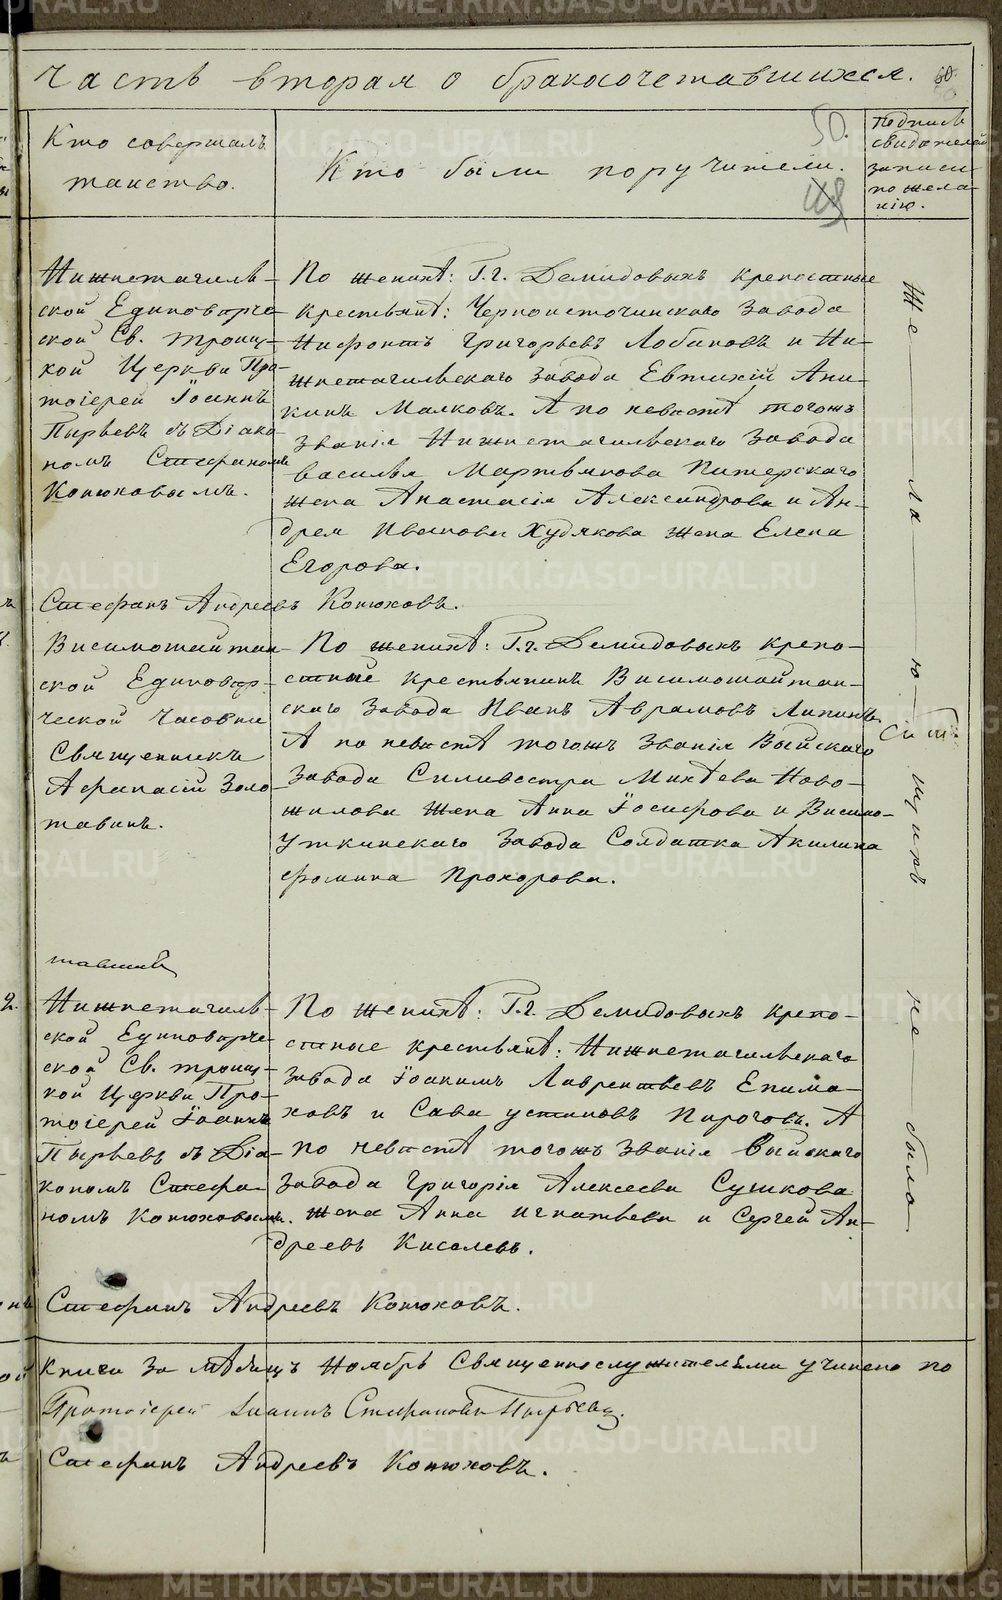 Часть вторая о бракосочетавшихся.
50.
Кто совершалъ
таинство.
Кто были поручители.
Подпись
свидетелей
записи
по жела-
нію.
Нижнетагиль-
ской Единоверче-
ской Св. Троиц-
кой Церкви Про-
тоіерей Іоаннъ
Пырьевъ съ Діако-
номъ Стефаномъ
Конюховымъ.
По женихѣ: Г.г. Демидовыхъ крепостные
крестьянѣ: Черноисточинскаго завода
Нифонтъ Григорьевъ Лобановъ и Ни-
жнетагильскаго завода Евтихій Ани-
кинъ Малковъ. А по невѣстѣ тогожъ
званія Нижнетагильскаго завода
Василья Мартьянова Питерскаго
жена Анастасія Александрова и Ан-
дрея Иванова Худякова жена Елена
Егорова.
Стефанъ Андреевъ Конюховъ.
Висимошайтан-
ской Единовер-
ческой часовни
Священникъ
Афанасій Золо-
тавинъ.
По женихѣ: Г.г. Демидовыхъ крепо-
стные крестьянинъ Висимошайтан-
скаго завода Иванъ Аврамовъ Липинъ.
А по невѣстѣ тогожъ званія Выйскаго
завода Силивестра Михѣева Ново-
жилова жена Анна Іосифова и Висимо-
уткинскаго завода Солдатка Акилина
Фомина Прохорова.
тавинъ
Нижнетагиль-
ской Единоверче-
ской Св. Троиц-
кой Церкви Про-
тоіерей Іоаннъ
Пырьевъ съ Діа-
кономъ Стефа-
номъ Конюховымъ.
По женихѣ: Г.г. Демидовыхъ крепо-
стные крестьянѣ: Нижнетагильскаго
завода Іоакимъ Лаврентьевъ Епима-
ховъ и Сава Устиновъ Пироговъ. А
по невѣстѣ тогожъ званія Выйскаго
завода Григорія Алексеева Сушкова
жена Анна Игнатьева и Сергей Ан-
дреевъ Киселевъ.
Стефанъ Андреевъ Конюховъ.
Же ла ю щихъ не было.
Книги за Мѣсяцъ Ноябрь Священнослужителями учинено по
Протоіерей Іоаннъ Стефановъ Пырьевъ.
Стефанъ Андреевъ Конюховъ.
METRIKI.GASO-URAL.RU